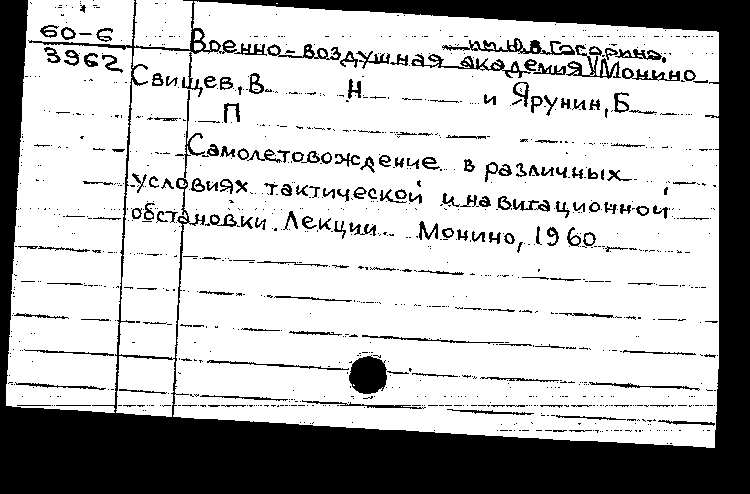 60-6
3962
им. Ю.А. Гагарина.
Военно-воздушная академия Монино
Свищев, В Н и Ярунин, Б
П
Самолетовождение в различных
условиях тактической и навигационной
обстановки. Лекции. Монино, 1960